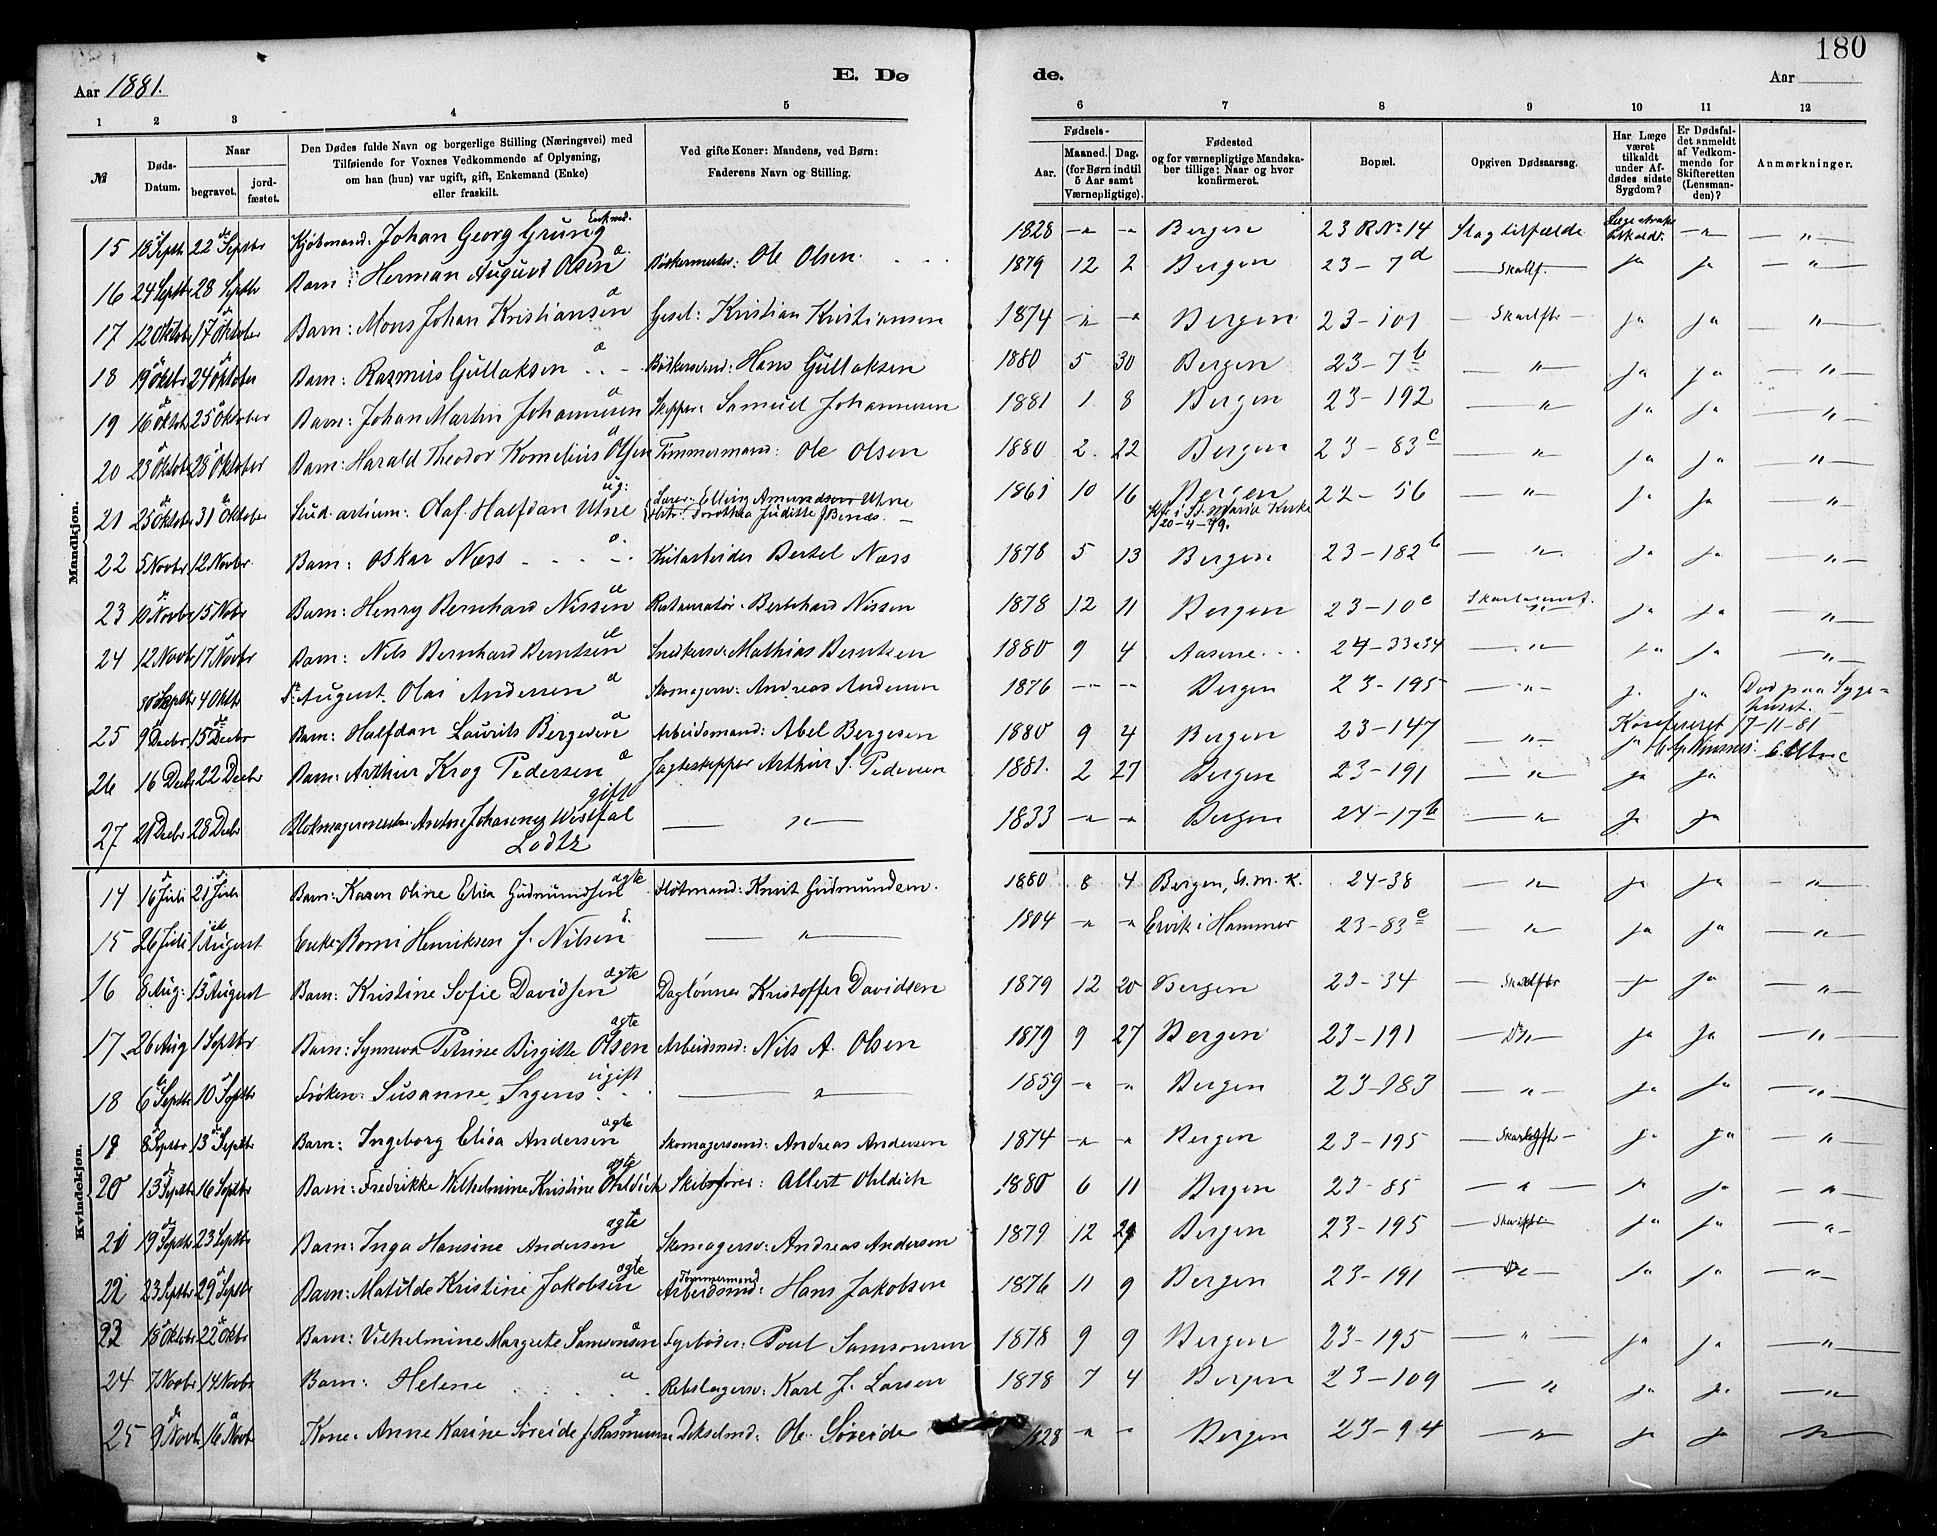 180
Aar 1881.
E. Dø
de.
Aar
1 2 3 4 5 6 7 8 9 10 11 12
№
Døds-Datum.
Naar
begravet.
jord-fæstet.
Den Dødes fulde Navn og borgerlige Stilling (Næringsvei) med
Tilføiende for Voxnes Vedkommende af Oplysning,
om han (hun) var ugift, gift, Enkemand (Enke)
eller fraskilt.
Ved gifte Koner: Mandens, ved Børn:
Faderens Navn og Stilling.
Fødsels-
Aar.
Maaned. Dag.
(for Børn indtil
5 Aar samt
Værnepligtige).
Fødested
og for værnepligtige Mandska-
ber tillige: Naar og hvor
konfirmeret.
Bopæl.
Opgiven Dødsaarsag.
Har Læge
været
tilkaldt
under Af-
dødes sidste
Sygdom?
Er Dødsfal-
det anmeldt
af Vedkom-
mende for
Skifteretten
(Lensman-
den)?
Anmærkninger.
Mandkjøn.
15 18 Septbr 22 Septbr Kjøbmand: Johan Georg Grung Enkmd. 1828 -"- -"- Bergen 23 R No 14 Slagtilfælde Læge straks tilkaldt. -"- -"-
16 24 Septbr 28 Septbr Barn: Herman August Olsen æ Bødkermester: Ole Olsen 1879 12 2 Bergen 23-7d Skallf. ja ja -"-
17 12 Oktobr 17 Oktober Barn: Mons Johan Kristiansen æ Gesel: Kristian Kristiansen 1874 -"- -"- Bergen 23-101 Skarlfbr ja ja -"-
18 19 Oktbr 24 Oktober Barn: Rasmus Gullaksen æ Bødkersvend: Hans Gullaksen 1880 5 30 Bergen 23-7b -"- ja ja -"-
19 16 Oktobr 25 Oktober Barn: Johan Martin Johannesen æ Skipper: Samuel Johannesen 1881 1 8 Bergen 23-192 -"- ja ja -"-
20 23 Oktobr 28 Oktober Barn: Harald Theodor Kornelius Olsen æ Tømmermand: Ole Olsen 1880 2 22 Bergen 23-83c -"- ja ja -"-
21 25 Oktobr 31 Oktober Stud. artium: Olaf Halfdan Utne ug: Lærer: Elling Amundsen Utne Dorothea Juditte 1861 10 16 Bergen Kf. i St. Marie Kirke 20-4-79. 22-56 -"- ja ja -"-
22 5 Novbr 12 Novbr Barn: Oskar Næss æ Kularbeider Bertel Næss 1878 5 13 Bergen 23-182b -"- ja ja -"-
23 10 Novbr 15 Nobr Barn: Henry Bernhard Nissen æ Restauratør: Bernhard Nissen 1878 12 11 Bergen 23-10c ja ja -"-
24 12 Novbr 17 Novbr Barn: Nils Bernhard Berntsen æ Snedkersv: Mathias Berntsen 1880 9 4 Aasene 24-33a34 -"- ja ja -"-
30 Septbr 4 Oktbr August Olai Andersen æ Skomagersv: Andreas Andersen 1876 -"- -"- Bergen 23-195 -"- ja ja Død paa Syge-
huset.
25 9 Decbr 15 Decbr Barn: Halfdan Laurits Bergesen æ Arbeidsmand: Abel Bergesen 1880 9 4 Bergen 23-147 -"- ja
Konfereret 17-11-81
26 16 Decbr 22 Decbr Barn: Arthur Krog Pedersen æ Jagteskipper Arthur S. Pedersen 1881. 2 27 Bergen 23-191 -"- ja ja
27 21 Decbr 28 Decbr Blokmagermester: Anton Johannes Westfal Lodtz gift -"- 1833 -"- -"- Bergen 24-17b -"- ja ja
Kvindekjøn.
14 16 Juli 21 Juli Barn: Karen Oline Elisa Gudmundsen ægte Fløtmand: Knut Gudmundsen. 1880 8 4 Bergen, St. M. K. 24-38 -"- ja ja -"-
15 26 Juli 1 August Enke: Borni Henriksen f. Nilsen -"- 1804 -"- -"- Ervik i Hammer 23-83c -"- ja ja -"-
16 8 Aug: 13 August Barn: Kristine Sofie Davidsen ægte Daglønner Kristoffer Davidsen 1879 12 20 Bergen 23-34 Skarlfbr ja ja -"-
17 26 Aug 1 Septbr Barn: Synneva Petrine Birgitte Olsen ægte Arbeidsmd: Nils A. Olsen 1879 9 27 Bergen 23-191 Do ja ja -"-
18 6 Septbr 10 Septbr Frøken: Susanne Irgens ugift -"- 1859 -"- -"- Bergen 23-183 -"- ja ja -"-
19 8 Septbr 13 Septbr Barn: Ingeborg Elisa Andersen ægte Skomagersvnd: Andreas Andersen 1874 -"- -"- Bergen 23-195 ja ja -"-
20 13 Septbr 16 Septbr Barn: Fredrikke Wilhelmine Kristine Ohldick ægte Skibsfører: Albert Ohldich 1880 6 11 Bergen 23-85 -"- ja ja -"-
21 19 Septbr 23 Septbr Barn: Inga Hansine Andersen ægte Skomagersv: Andreas Andersen 1879 12 29 Bergen 23-195 Skarlfbr ja ja -"-
22 23 Septbr 29 Septbr Barn: Matilde Kristine Jakobsen ægte Tømmermand Arbeidsmd: Hans Jakobsen 1876 11 9 Bergen 23-191 Do ja ja -"-
23 18 Oktobr 22 Oktbr Barn: Vilhelmine Margrete Samsonsen æ Fyrbøder: Poul Samsonsen 1878 9 9 Bergen 23-195 -"- ja ja -"-
24 7 Novbr 14 Novbr Barn: Helene æ Rebslagersv: Karl J. Larsen 1878 7 4 Bergen 23-109 -"- ja ja -"-
25 9 Novbr 16 Novbr Kone: Anne Karine Søreide f. Rasmussen g Dekselmd: Ole Søreide 1828 -"- -"- Bergen 23-94 -"- ja ja -"-